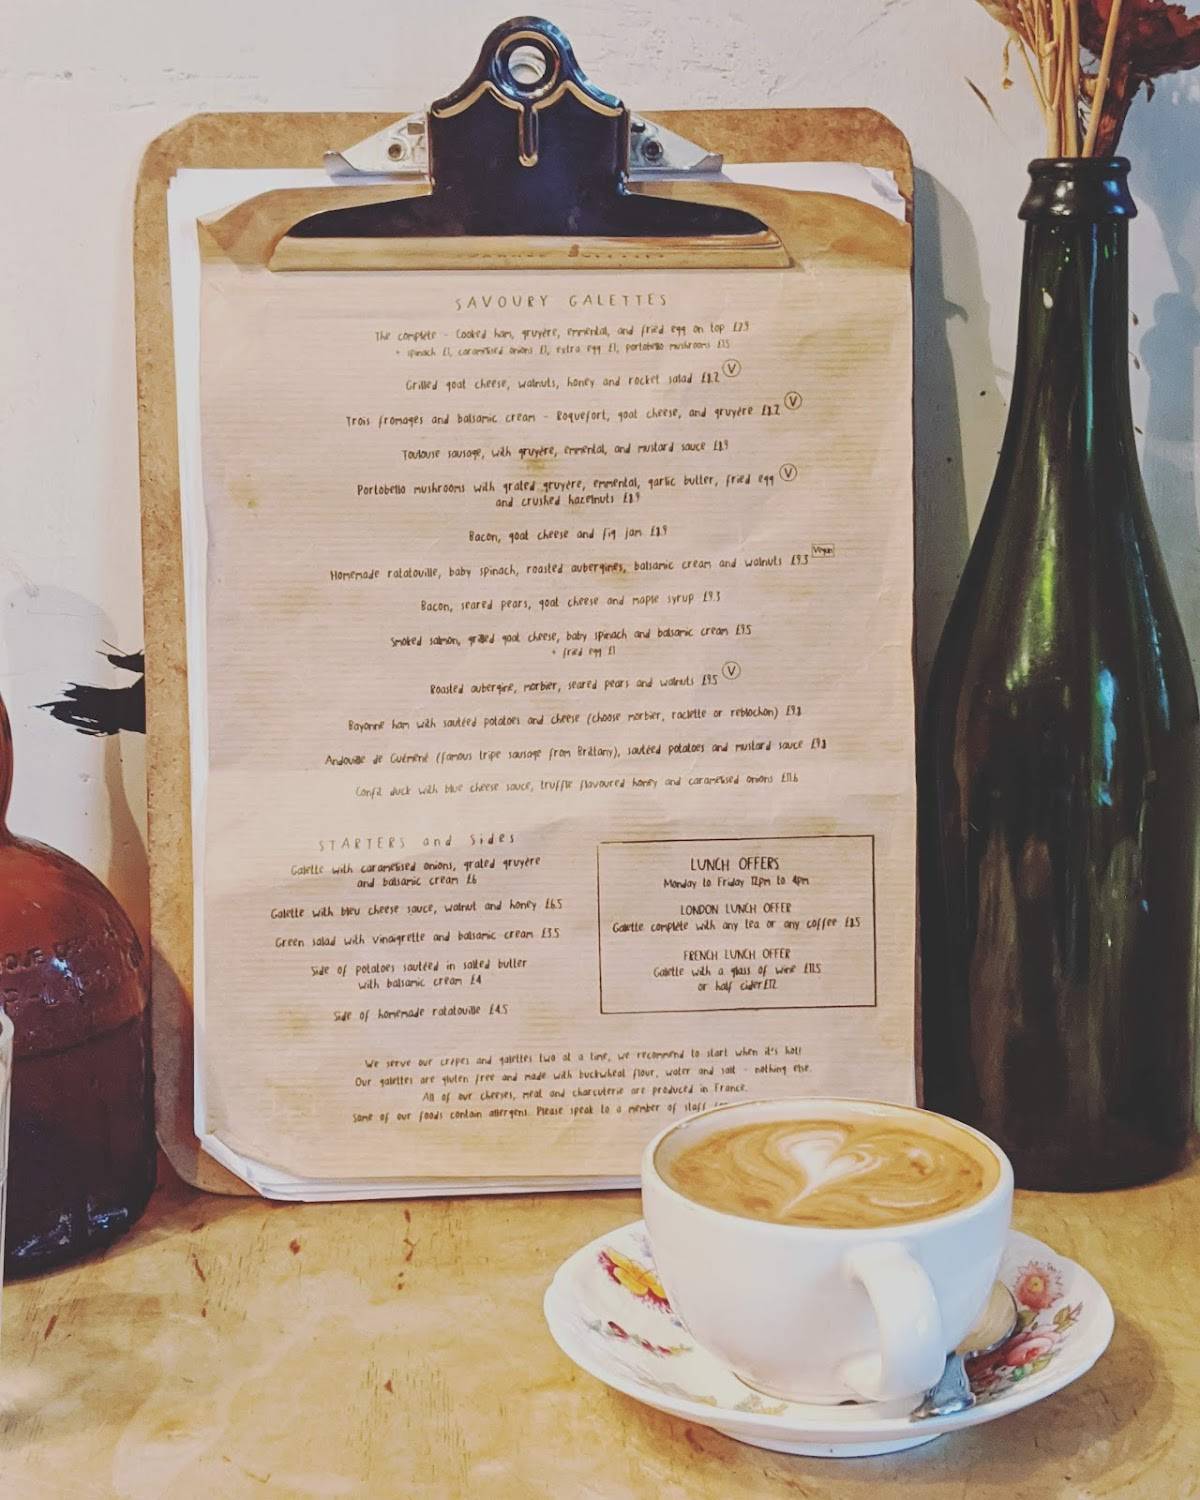 SAVOURY GALETTES
The complete - Cooked ham, gruyère, emmental, and fried egg on top £7.9
+ spinach £1, caramelised onions £1, extra egg £1, portobello mushrooms £1.5
Grilled goat cheese, walnuts, honey and rocket salad £8.2 V
Trois fromages and balsamic cream - Roquefort, goat cheese, and gruyère £8.2 V
Toulouse sausage, with gruyère, emmental, and mustard sauce £8.9
Portobello mushrooms with grated gruyère, emmental, garlic butter, fried egg V
and crushed hazelnuts £8.9
Bacon, goat cheese and fig jam £8.9
Homemade ratatouille, baby spinach, roasted aubergines, balsamic cream and walnuts £9.3 Vegan
Bacon, seared pears, goat cheese and maple syrup £9.3
Smoked salmon, grilled goat cheese, baby spinach and balsamic cream £9.5
+ fried egg £1
Roasted aubergine, morbier, seared pears and walnuts £9.5 V
Bayonne ham with sautéed potatoes and cheese (choose morbier, raclette or reblochon) £9.8
Andouille de Guémené (famous tripe sausage from Brittany), sautéed potatoes and mustard sauce £9.8
Confit duck with blue cheese sauce, truffle flavoured honey and caramelised onions £11.6
STARTERS and Sides
Galette with caramelised onions, grated gruyère
and balsamic cream £6
Galette with bleu cheese sauce, walnut and honey £6.5
Green salad with vinaigrette and balsamic cream £3.5
Side of potatoes sautéed in salted butter
with balsamic cream £4
Side of homemade ratatouille £4.5
LUNCH OFFERS
Monday to Friday 12pm to 4pm
LONDON LUNCH OFFER
Galette complete with any tea or any coffee £8.5
FRENCH LUNCH OFFER
Galette with a glass of wine £11.5
or half cider £12
We serve our crêpes and galettes two at a time, we recommend to start when it's hot!
Our galettes are gluten free and made with buckwheat flour, water and salt - nothing else.
All of our cheeses, meat and charcuterie are produced in France.
Some of our foods contain allergens. Please speak to a member of staff